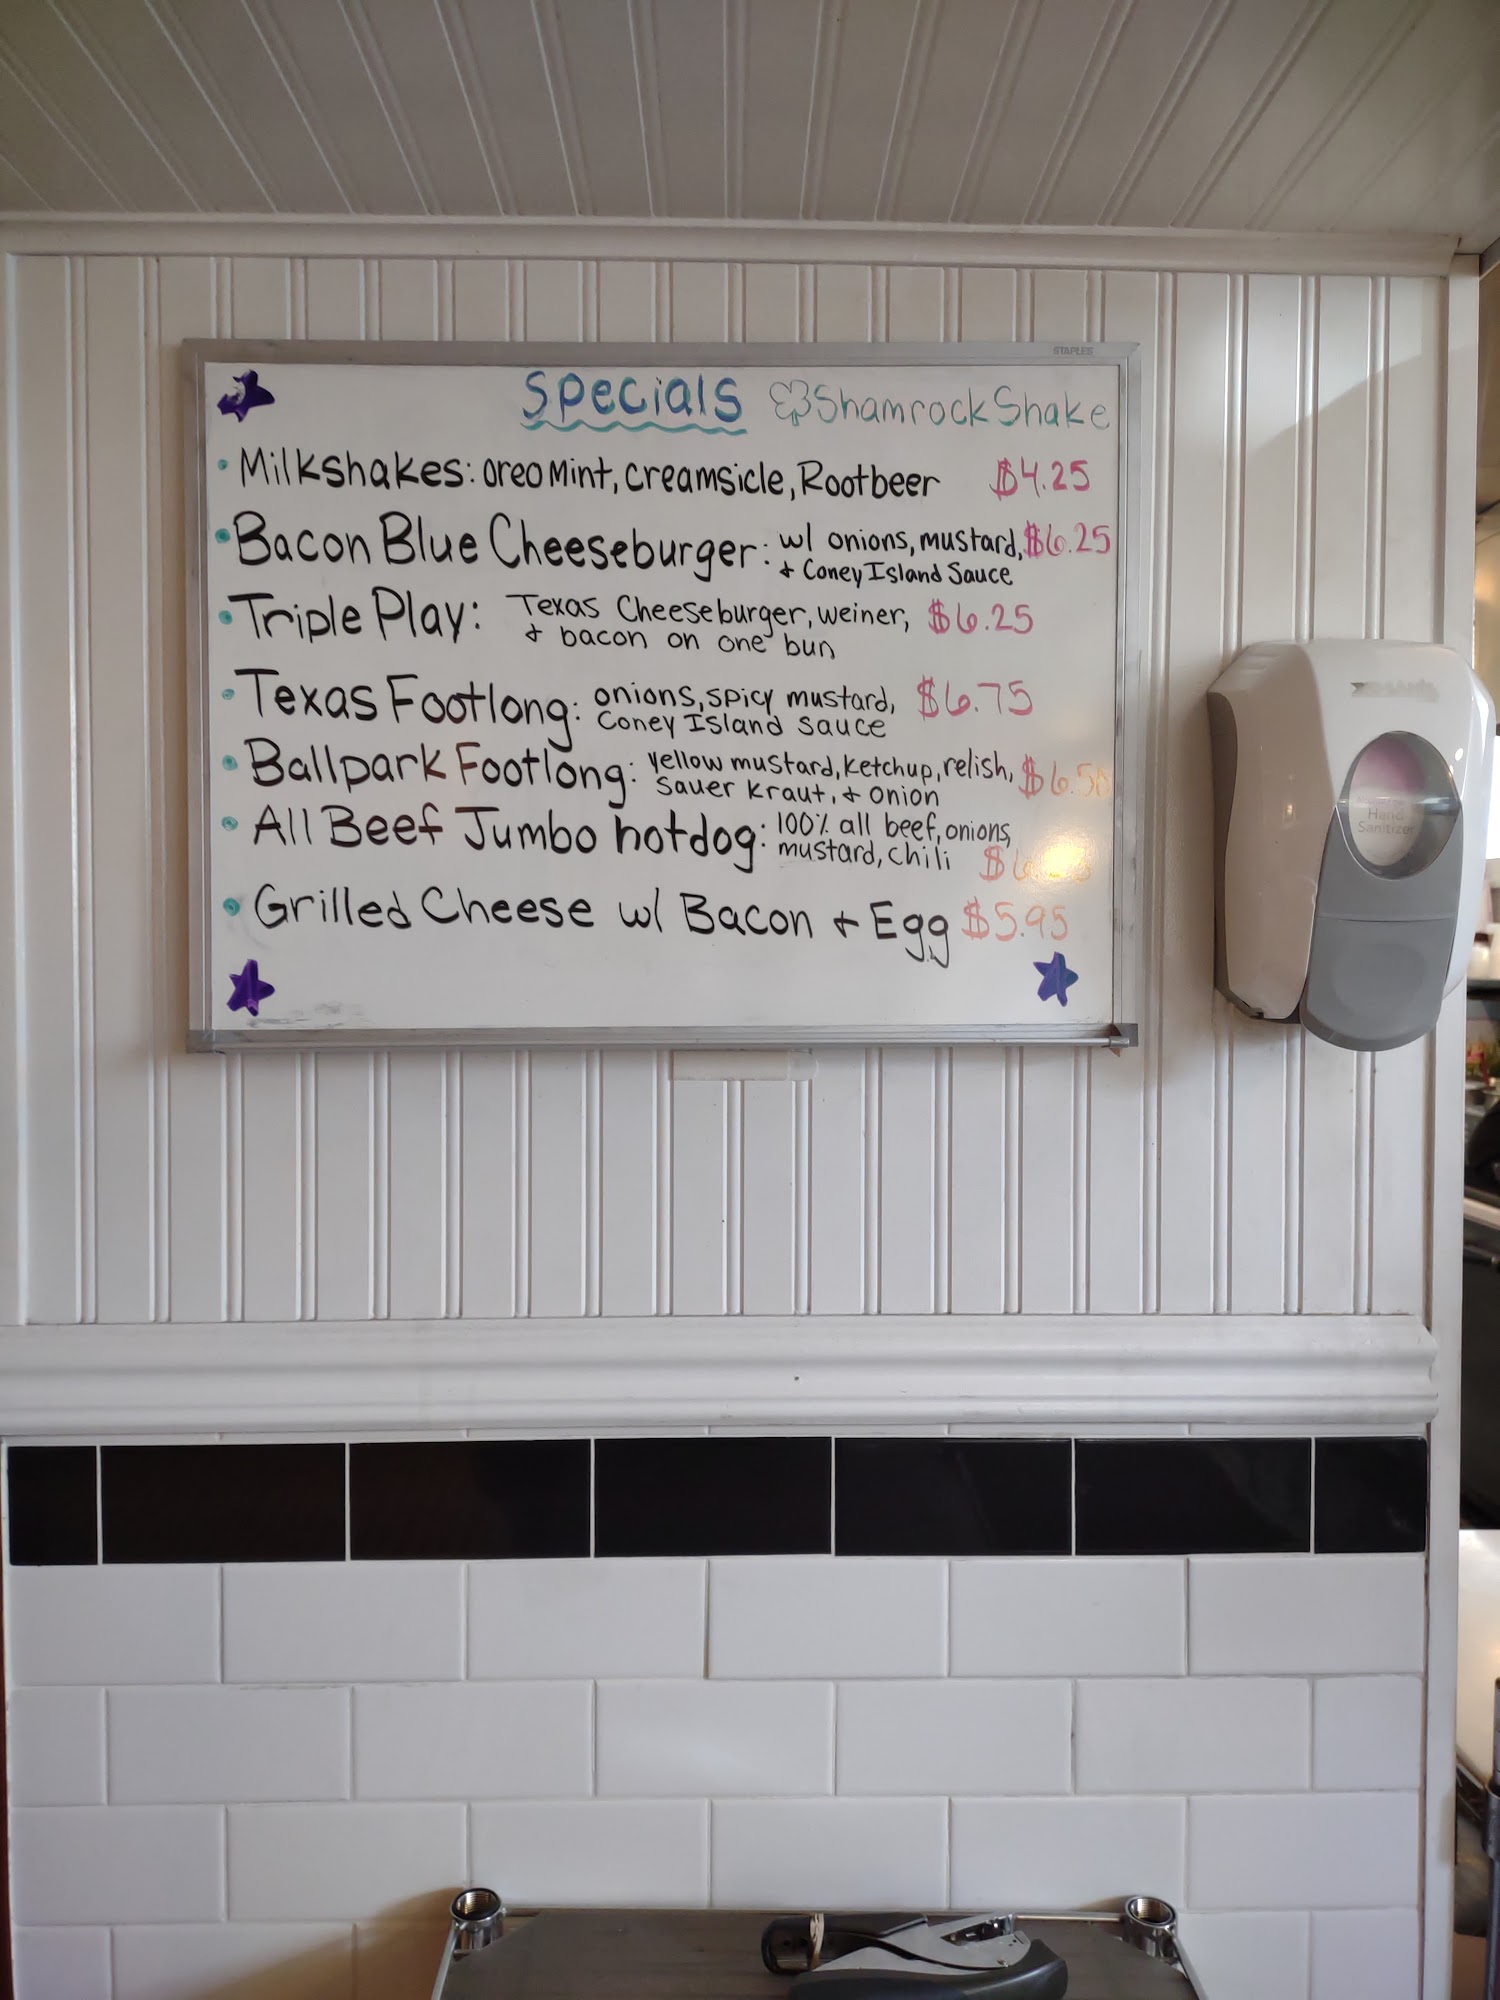 STAPLES
Specials ShamrockShake
Milkshakes: Oreo Mint, Creamsicle, Rootbeer $4.25
Bacon Blue Cheeseburger: w/ onions, mustard, $6.25
+ Coney Island Sauce
Triple Play: Texas Cheeseburger, weiner, $6.25
+ bacon on one bun
Texas Footlong: onions, spicy mustard, $6.75
Coney Island sauce
Ballpark Footlong: yellow mustard, ketchup, relish, $6.50
Sauer kraut, + onion
All Beef Jumbo hotdog: 100% all beef, onions,
mustard, chili
Grilled Cheese w/ Bacon + Egg $5.95
Hand
Sanitizer